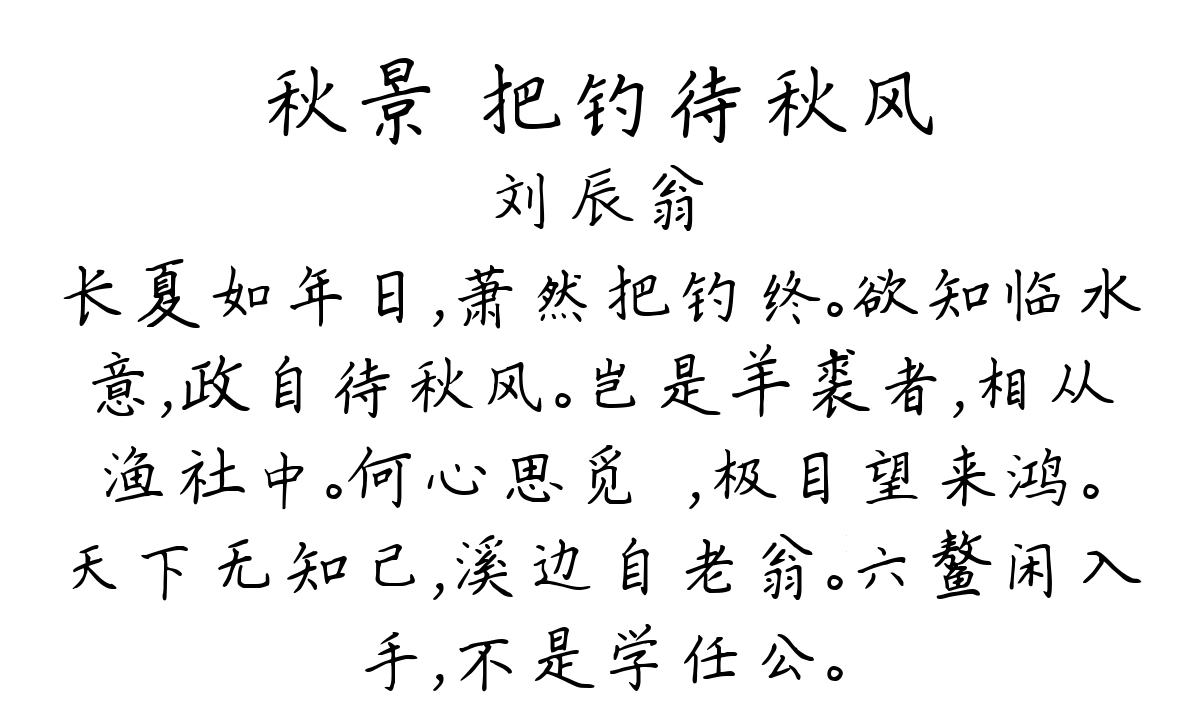 秋景 把钓待秋风
刘辰翁
长夏如年日,萧然把钓终。欲知临水
意,政自待秋风。岂是羊裘者,相从
渔社中。何心思觅 ,极目望来鸿。
天下无知己,溪边自老翁。六鳌闲入
手,不是学任公。